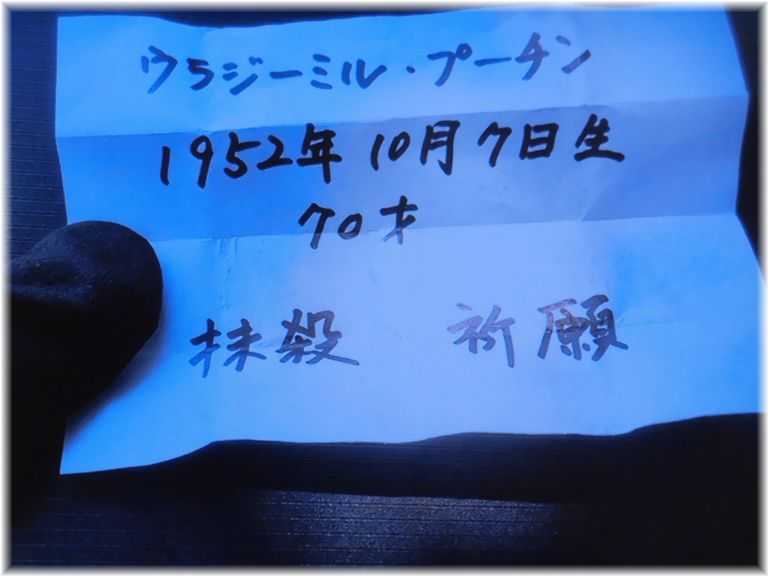 ウラジーミル・プーチン
1952年10月7日生
70才
抹殺 祈願